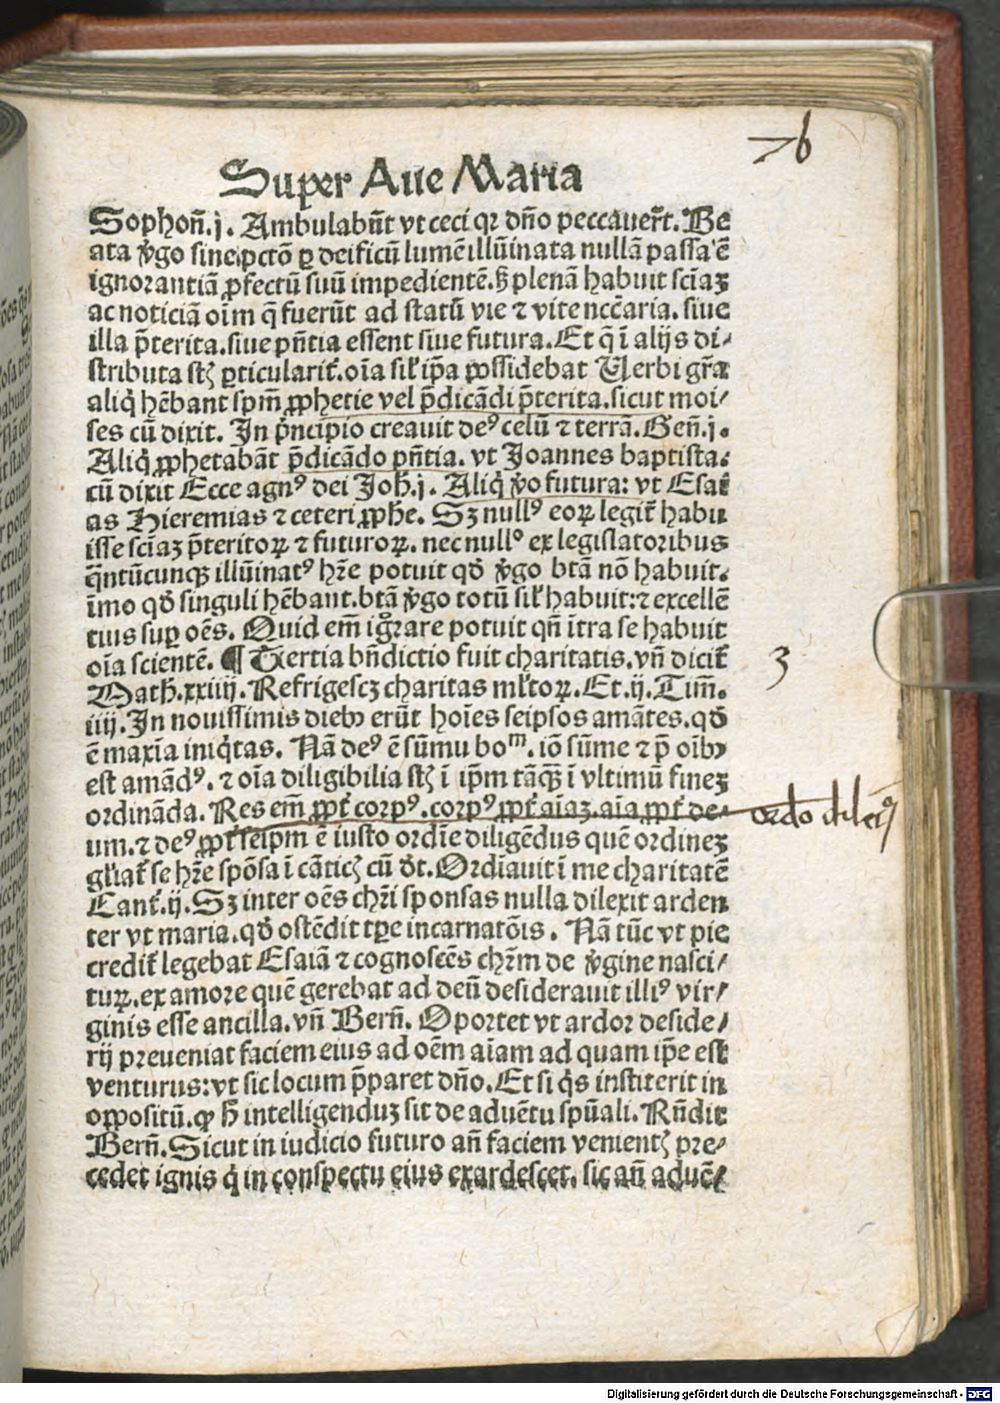 76
Super Aue Maria
Sophon̄.j. Ambulabūt vt ceci qꝛ dn̄o peccauer̄t. Be
ata v̓go sine pctō ꝑ deificū lumē illūinata nullā passa ē
ignorantiā ꝓfectū suū impedientē. sꝫ plenā habuit sciāꝫ
ac noticiā oīm q̄ fuerūt ad statū vie ⁊ vite nccāria. siue
illa p̄terita. siue pn̄tia essent siue futura. Et q̄ ī alijs di⸗
stributa stꝫ ꝑticularit̄. oīa sil̓ ip̄a possidebat Uerbi gr̄a
aliq̓ hēbant spm̄ ꝓphetie vel p̄dicādi p̄terita. sicut moi⸗
ses cū dixit. In p̄ncipio creauit deꝰ celū ⁊ terrā. Gen̄.j.
Aliq̓ ꝓphetabāt p̄dicādo pn̄tia. vt Joannes baptista.
cū dixit Ecce agnꝰ dei Joh̄.j. Aliq̓ v̓o futura: vt Esai
as Hieremias ⁊ ceteri ꝓphe. Sꝫ nullꝰ eoꝝ legit̄ habu
isse sciāꝫ p̄teritoꝝ ⁊ futuroꝝ. nec nullꝰ ex legislatoribus
q̄ntūcunqꝫ illūinatꝰ hr̄e potuit qd̓ v̓go btā nō habuit.
īmo qd̓ singuli hēbant. btā v̓go totū sil̓ habuit: ⁊ excellē
tius suꝑ oēs. Quid em̄ igr̄are potuit qn̄ ītra se habuit
oīa scientē. ¶ Tertia bn̄dictio fuit charitatis. vn̄ dicit̄
Math̄.xxiiij. Refrigescꝫ charitas ml̓toꝝ. Et.ij.Tim̄.
iiij. In nouissimis diebꝰ erūt hoīes seipsos amātes. qd̓
ē maxīa iniq̓tas. Nā deꝰ ē sūmu boᵐ. iō sūme ⁊ p̄ oībꝰ
est amādꝰ. ⁊ oīa diligibilia stꝫ ī ip̄m tāqꝫ ī vltimū fineꝫ
ordināda. Res em̄ ꝓpt̄ corpꝰ. corpꝰ ꝓpt̄ aīaꝫ. aīa ꝓpt̄ de⸗
um. ⁊ deꝰ ꝓpt̄ seipm̄ ē iusto ordīe diligēdus quē ordineꝫ
gl̓iat̄ se hr̄e spōsa ī cāticꝫ cū d̓t. Ordīauit ī me charitatē
Cant̄.ij. Sꝫ inter oēs chr̄i sponsas nulla dilexit arden
ter vt maria. qd̓ ostēdit tꝑe incarnatōis. Nā tūc vt pie
credit̄ legebat Esaiā ⁊ cognoscēs chr̄m de v̓gine nasci⸗
tuꝝ. ex amore quē gerebat ad deū desiderauit illiꝰ vir⸗
ginis esse ancilla. vn̄ Bern̄. Oportet vt ardor deside⸗
rij preueniat faciem eius ad oēm aīam ad quam ip̄e est
venturus: vt sic locum p̄paret dn̄o. Et si q̓s institerit in
oppositū. ꝙ h̄ intelligenduꝫ sit de aduētu spūali. Rn̄dit
Bern̄. Sicut in iudicio futuro an̄ faciem venientꝫ pre⸗
cedet ignis q̓ in conspectu eius exardescet. sic an̄ aduē⸗
3
ordo
Digitalisierung gefördert durch die Deutsche Forschungsgemeinschaft - DFG